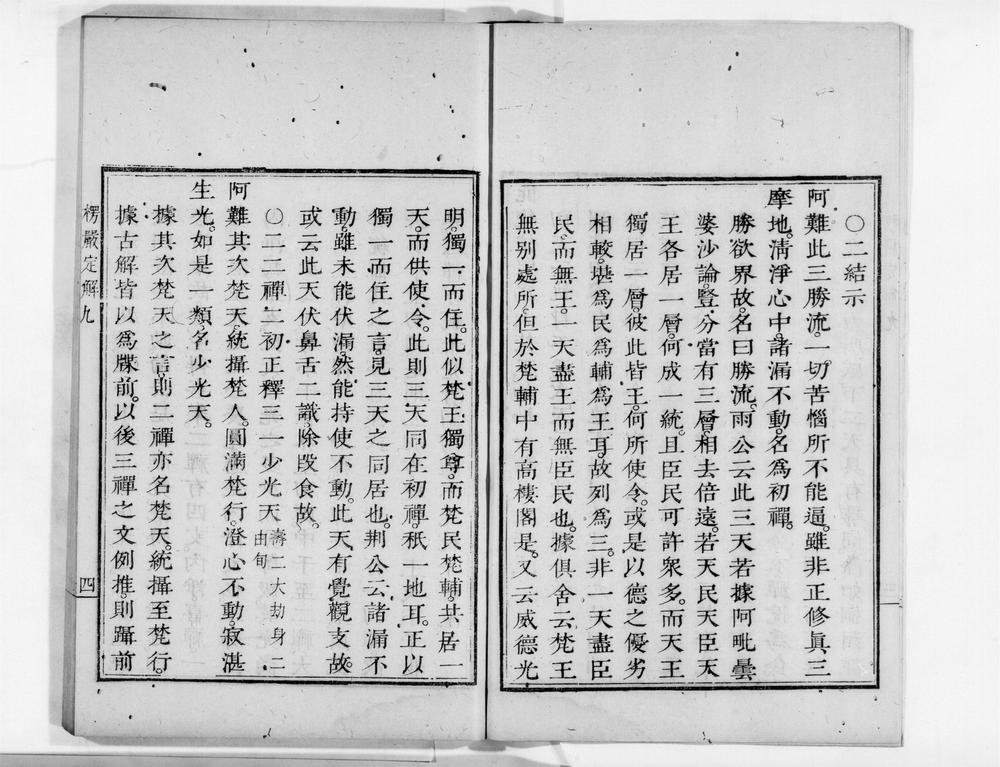 〇二結示
阿難此三勝流。一切苦惱所不能逼。雖非正修眞三
摩地。清淨心中。諸漏不動。名爲初禪。
勝欲界故。名曰勝流。雨公云此三天若據阿毗曇
婆沙論。豎分當有三層。相去倍遠。若天民天臣天
王各居一層。何成一統。且臣民可許衆多。而天王
獨居一層。彼此皆王。何所使令。或是以德之優劣
相較。堪爲民爲輔爲王耳。故列爲三。非一天盡臣
民。而無王。一天盡王而無臣民也。據俱舍云梵王
無别處所。但於梵輔中有高樓閣是。又云威德光
明。獨一而住。此似梵王獨尊。而梵民梵輔。共居一
天。而供使令。此則三天同在初禪。秖一地耳。正以
獨一而住之言。見三天之同居也。荆公云諸漏不
動。雖未能伏漏。然能持使不動。此天有覺觀支故。
或云此天伏鼻舌二識。除段食故。
〇二二禪二初正釋三一少光天壽二大劫身二由旬
阿難其次梵天。統攝梵人。圓滿梵行。澄心不動。寂湛
生光。如是一類。名少光天。
據其次梵天之言。則二禪亦名梵天。統攝至梵行。
據古解皆以爲牒前。以後三禪之文例推。則躡前
楞嚴定解九
四